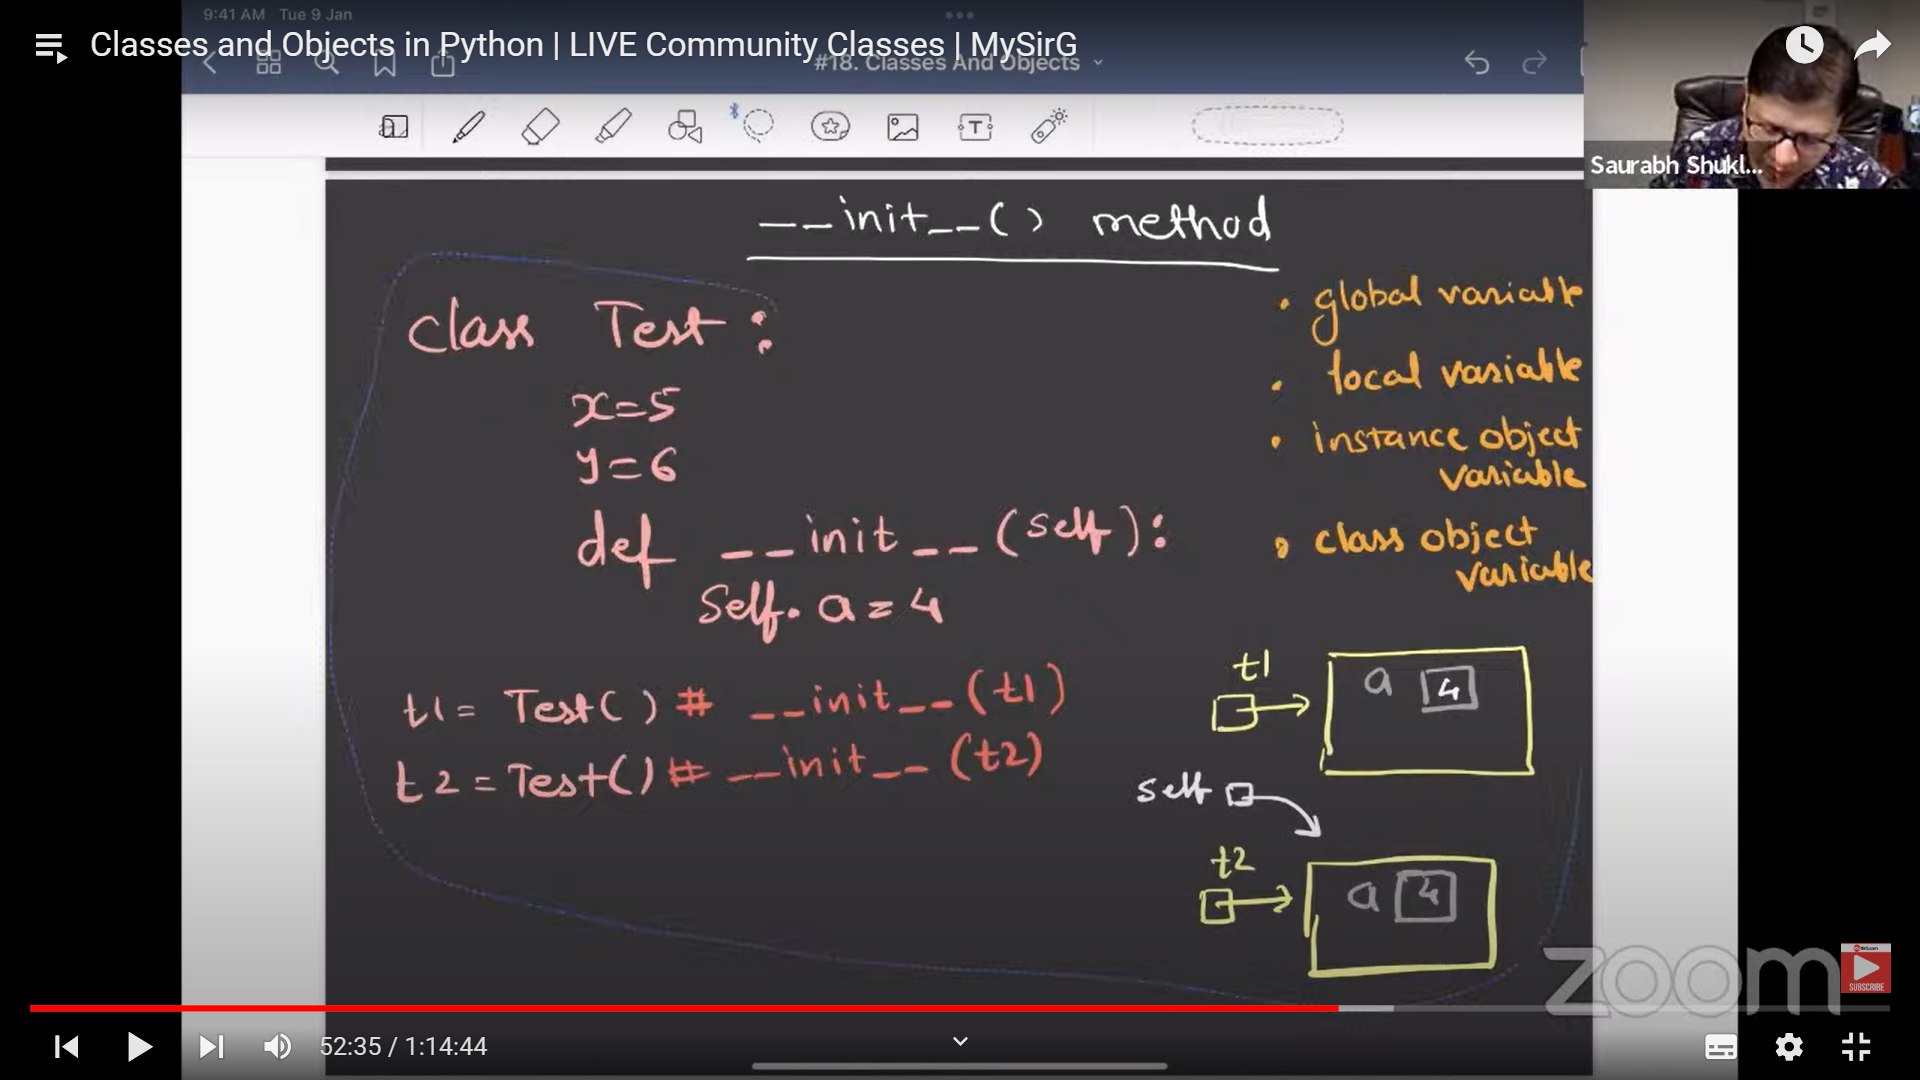 9:41 AM Tue 9 Jan
Classes and Objects in Python | LIVE Community Classes | MySirG
#18. Classes And Objects
T
Saurabh Shukl...
__init__() method
class Test:
x=5
y=6
def __init__(self):
self.a=4
t1= Test() # __init__(t1)
t2=Test() # __init__(t2)
• global variable
• local variable
• instance object
variable
• class object
variable
t1
a 4
self
t2
a 4
zoom
SUBSCRIBE
52:35 / 1:14:44